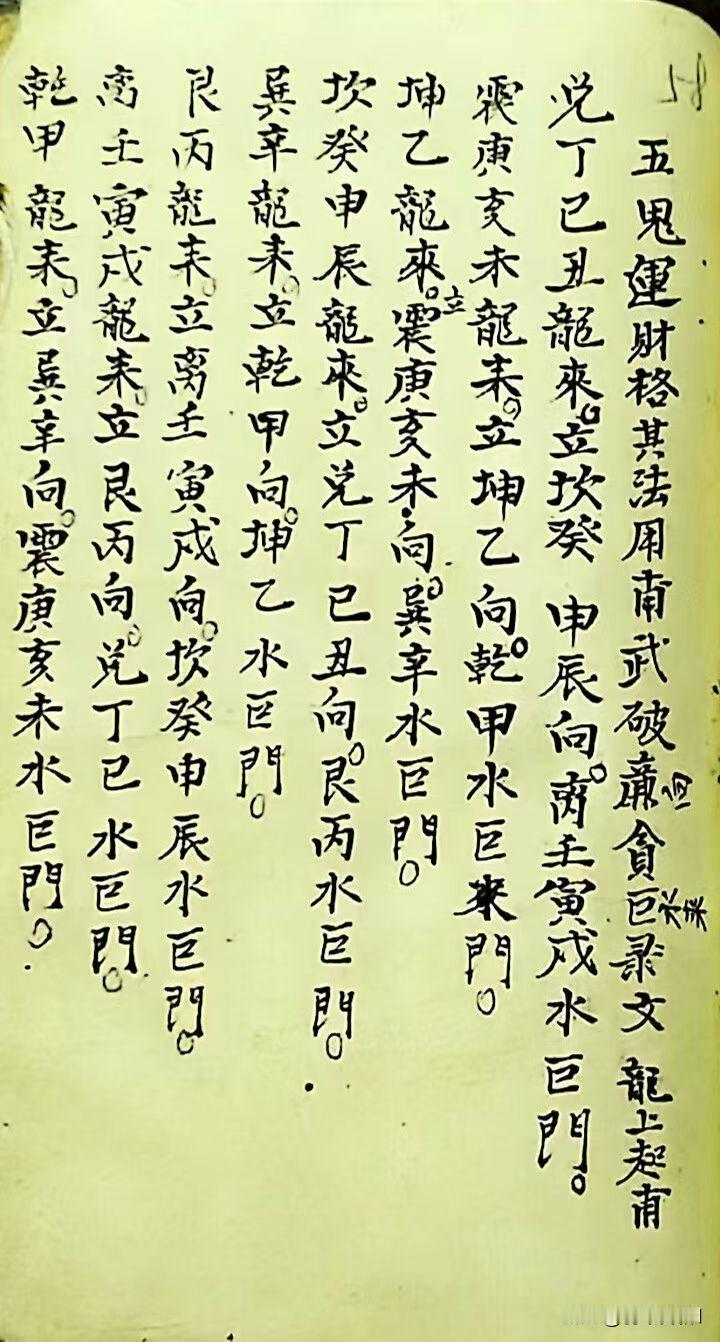 58
五鬼運財格其法用甫武破廉貪巨录文 龍上起甫
向
水来
兑丁巳丑龍來。立坎癸 申辰向。离壬寅戌水巨門。
震庚亥未龍来。立坤乙向乾。甲水巨來門。
坤乙龍來。立震庚亥未向。巽辛水巨門。
坎癸申辰龍來。立兑丁巳丑向。艮丙水巨門。
巽辛龍来。立乾甲向。坤乙水巨門。
艮丙龍来。立离壬寅戌向。坎癸申辰水巨門。
离壬寅戌龍来。立艮丙向。兑丁巳水巨門。
乾甲龍来。立巽辛向。震庚亥未水巨門。